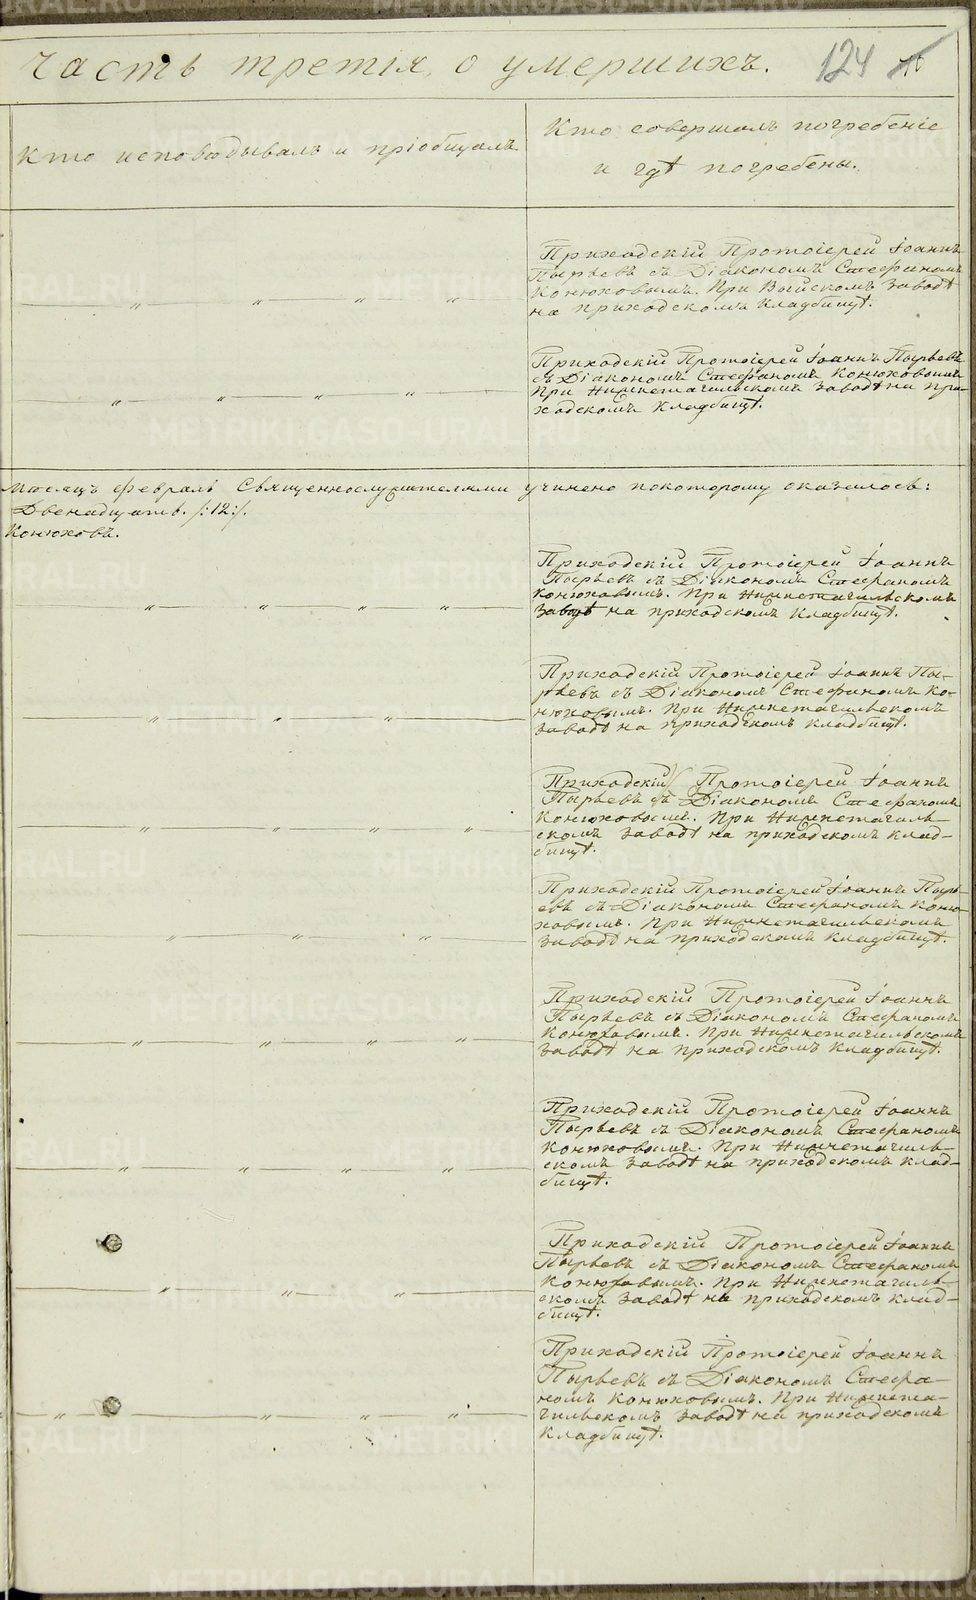 Часть третія, о умершихъ. 124
Кто исповѣдывалъ и пріобщалъ
Кто совершалъ погребеніе
и гдѣ погребены.
Приходскій Протоіерей Іоаннъ
Пырьевъ съ Діакономъ Стефаномъ
Конюховымъ. При Выйскомъ Заводѣ
на приходскомъ кладбищѣ.
Приходскій Протоіерей Іоаннъ Пырьевъ
съ Діакономъ Стефаномъ Конюховымъ
При Нижнетагильскомъ Заводѣ на при-
ходскомъ кладбищѣ.
Мѣсяцъ Февраль Священнослужителями учинено покоторому оказалось:
Двенадцать. /:12:/.
Конюховъ.
Приходскій Протоіерей Іоаннъ
Пырьевъ съ Діакономъ Стефаномъ
Конюховымъ. При Нижнетагильскомъ
Заводѣ на приходскомъ кладбищѣ.
Приходскій Протоіерей Іоаннъ Пы-
рьевъ съ Діакономъ Стефаномъ Ко-
нюховымъ. При Нижнетагильскомъ
Заводѣ на приходскомъ кладбищѣ.
Приходскій Протоіерей Іоаннъ
Пырьевъ съ Діакономъ Стефаномъ
Конюховымъ. При Нижнетагиль-
скомъ Заводѣ на приходскомъ клад-
бищѣ.
Приходскій Протоіерей Іоаннъ Пырь-
евъ съ Діакономъ Стефаномъ Коню-
ховымъ. При Нижнетагильскомъ
Заводѣ на приходскомъ кладбищѣ.
Приходскій Протоіерей Іоаннъ
Пырьевъ съ Діакономъ Стефаномъ
Конюховымъ. При Нижнетагильскомъ
Заводѣ на приходскомъ кладбищѣ.
Приходскій Протоіерей Іоаннъ
Пырьевъ съ Діакономъ Стефаномъ
Конюховымъ. При Нижнетагиль-
скомъ Заводѣ на приходскомъ клад-
бищѣ.
Приходскій Протоіерей Іоаннъ
Пырьевъ съ Діакономъ Стефаномъ
Конюховымъ. При Нижнетагиль-
скомъ Заводѣ на приходскомъ клад-
бищѣ.
Приходскій Протоіерей Іоаннъ
Пырьевъ съ Діакономъ Стефа-
номъ Конюховымъ. При Нижнета-
гильскомъ Заводѣ на приходскомъ
кладбищѣ.